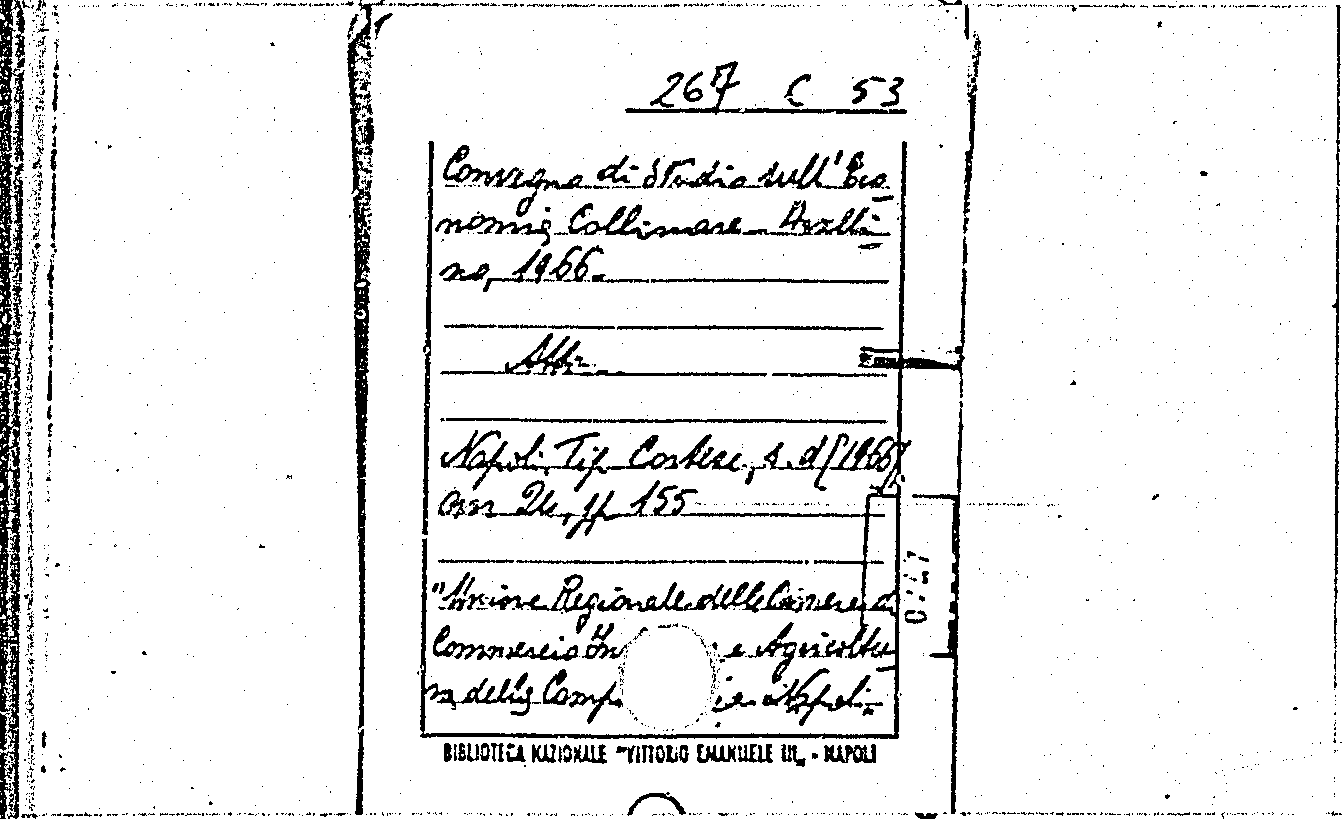 267 C 53
Convegno di Studio sull'Eco
nomia Collinare. Avelli
no, 1966.
Atti.
Napoli, Tip. Cortese, s. d. [1966]
cm 24, pp. 155
"Unione Regionale delle Camere di
Commercio In e Agricoltu
ra della Camp Napoli.
BIBLIOTECA NAZIONALE "VITTORIO EMANUELE III„ - NAPOLI